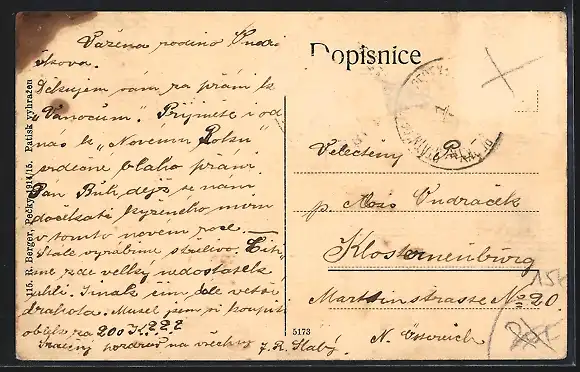 Vážena rodino Ondrá
čkova.
Děkujem vám za přání k
"Vánocům". Přijměte i od
nás k "Novému Roku"
srdečné blaho přání.
Pan Bůh dejž se nám
dočekati kýženého míru
v tomto novém roce. —
Stále vyrábíme střelivo.
me zde velky nedostatek
uhlí. Jinak čím dále vetší
drahota. Musel jsem si koupit
obuv za 200 K.???
Srdečný pozdrav na všechny J. R. Slabý.
115. R. Berger, Pečky 1914/15. Patisk vyhrazen
5173
Dopisnice
Velectěný P.
p. Alois Ondráček
Klosterneuburg
Martinstrasse No 20
N. Östereich
15K